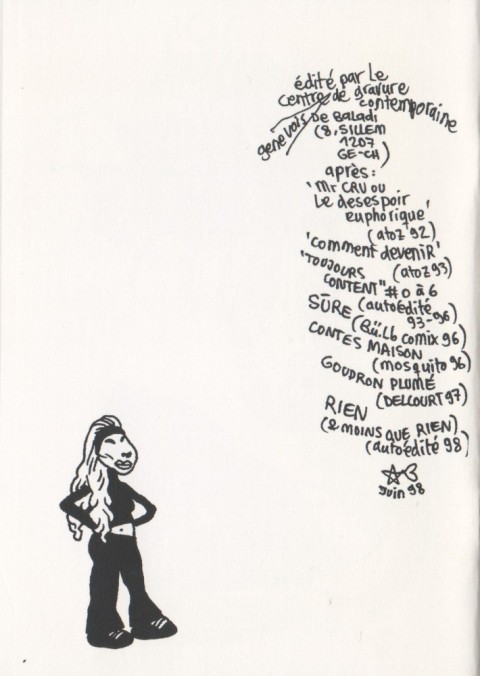 édité par Le
centre de gravure
contemporaine
genevois
DE BALADI
(8, SILLEM
1207
GE-CH)
après:
'Mr CRU OU
Le desespoir
euphorique'
(atoz '92)
'comment devenir'
(atoz 93)
"TOUJOURS
CONTENT" #0 à 6
(autoédité
93-96)
SÛRE (Bü.Lb comix 96)
CONTES MAISON
(mosquito 96)
GOUDRON PLUMÉ
(DELCOURT 97)
RIEN
(& MOINS QUE RIEN)
(autoédité 98)
Juin 98